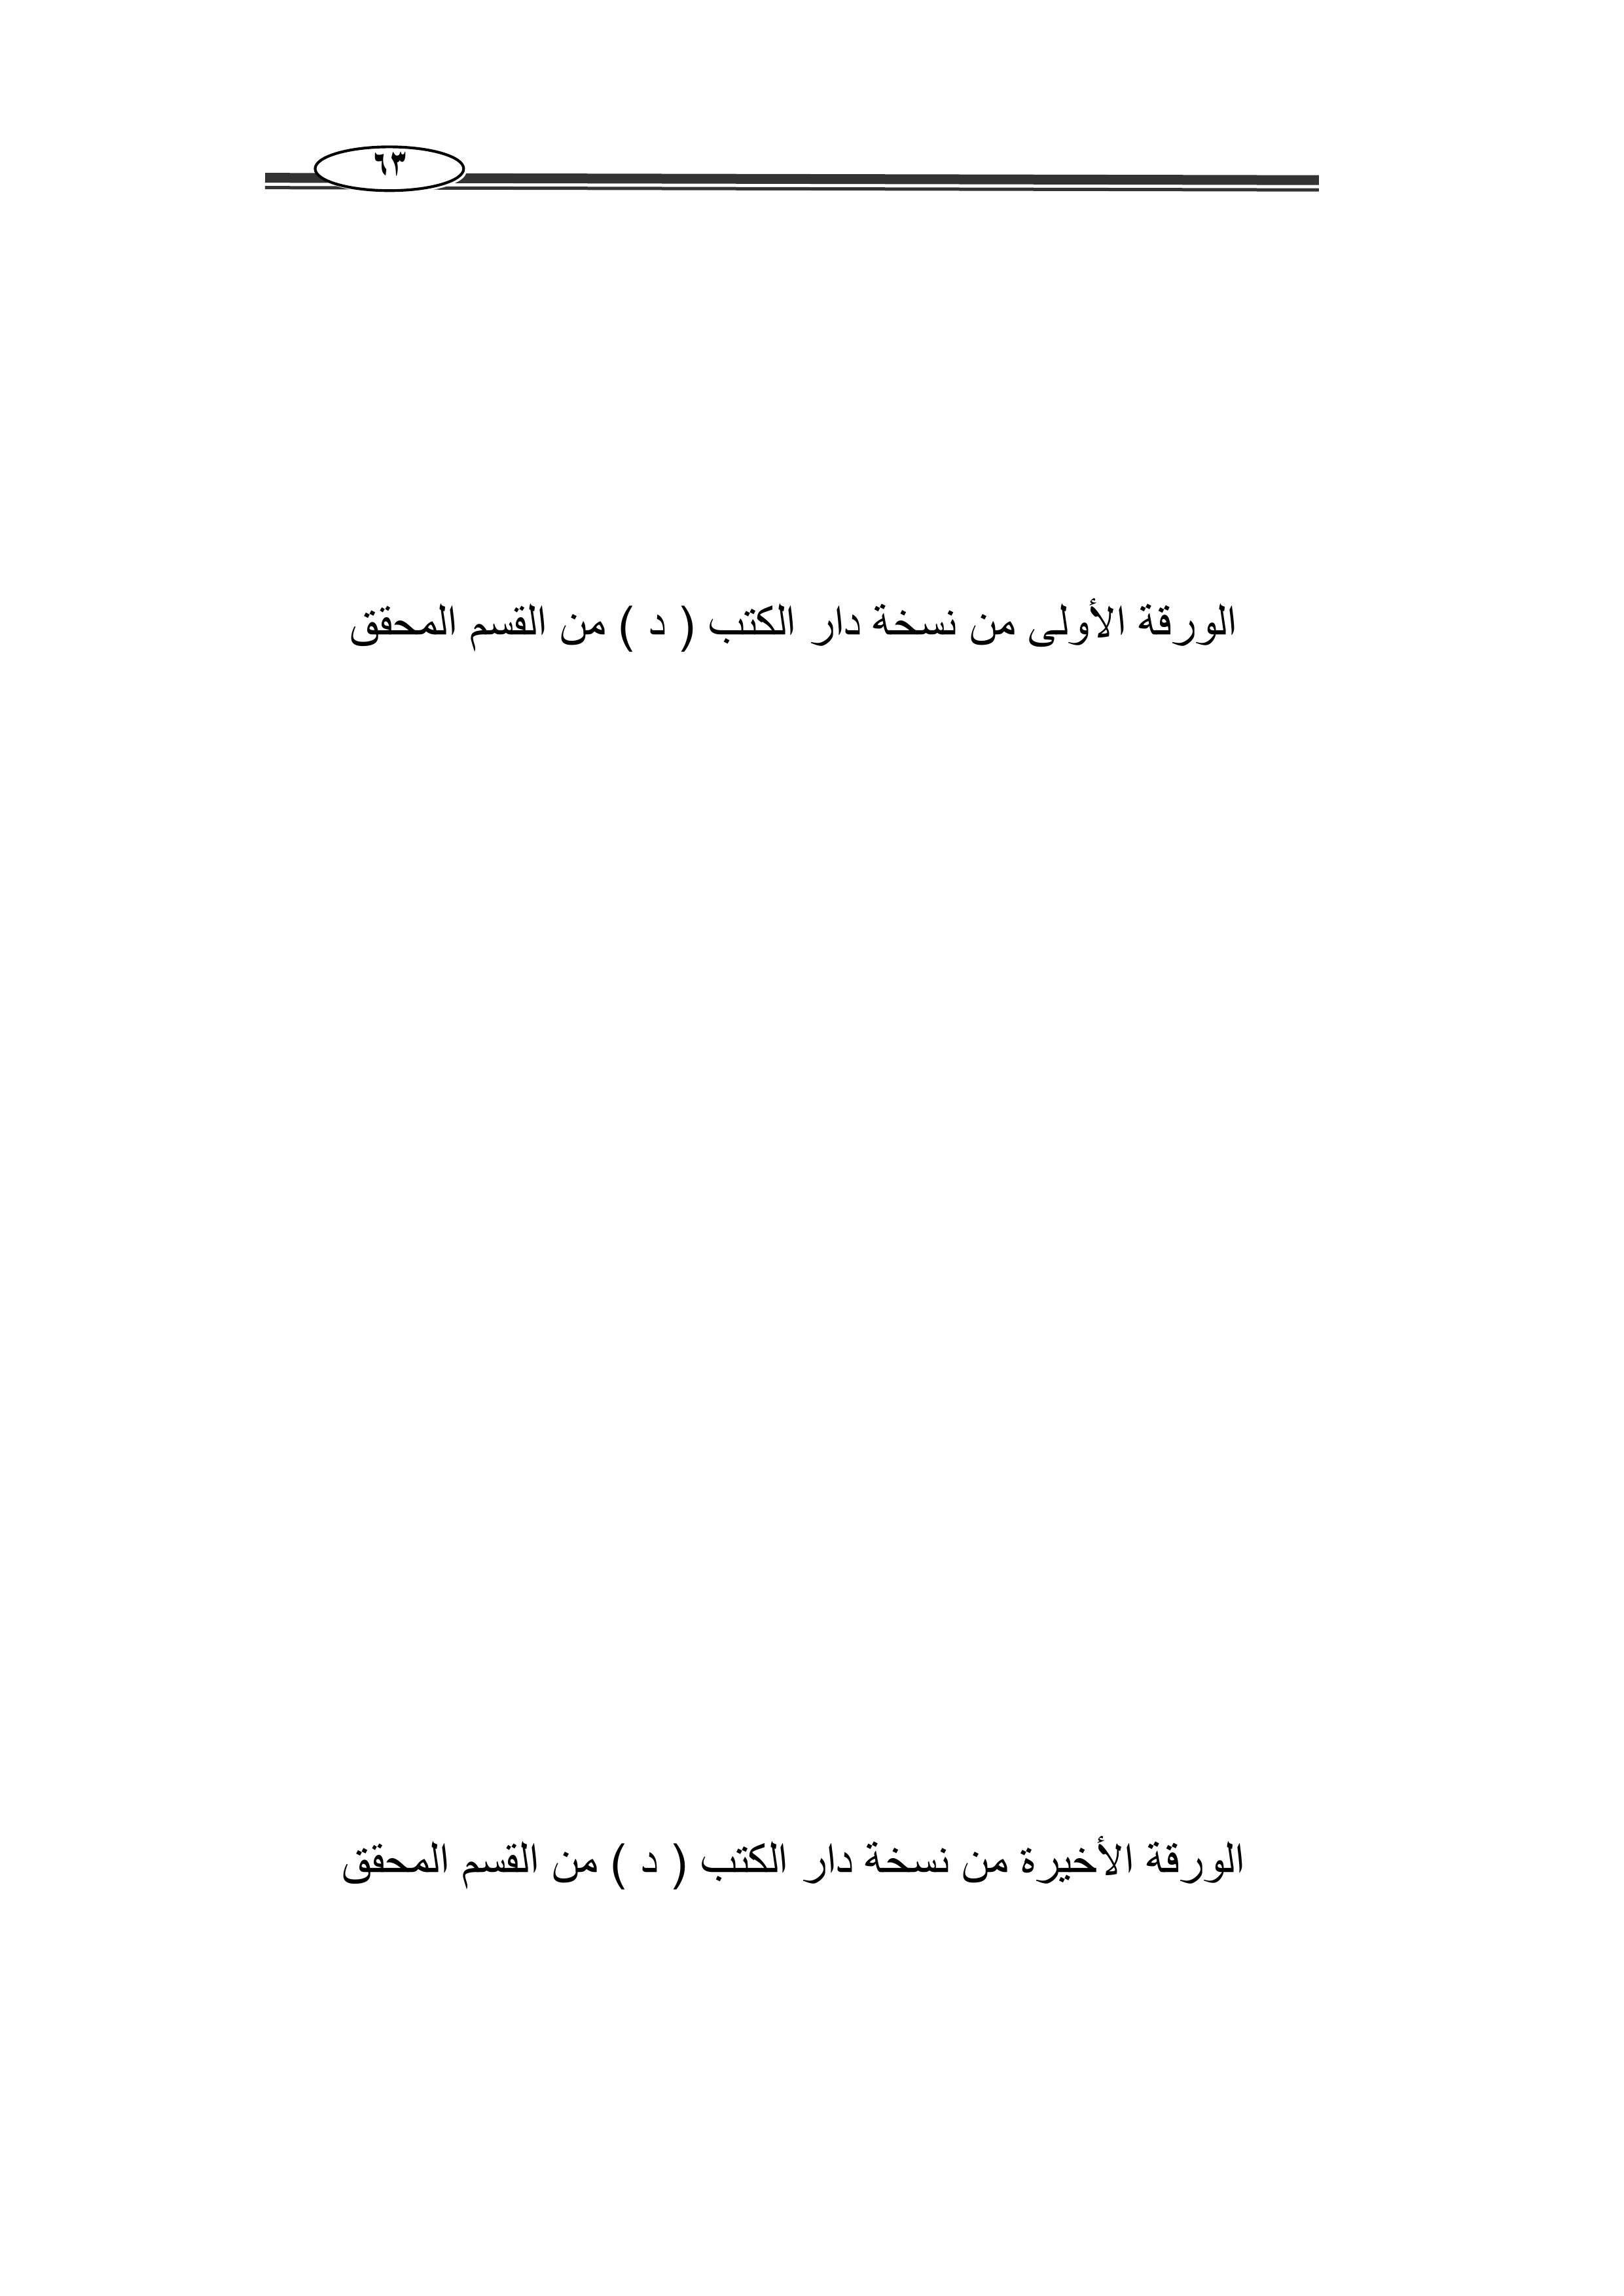 ٦٣
الورقة الأولى من نسخة دار الكتب ( د ) من القسم المحقق
الورقة الأخيرة من نسخة دار الكتب ( د ) من القسم المحقق